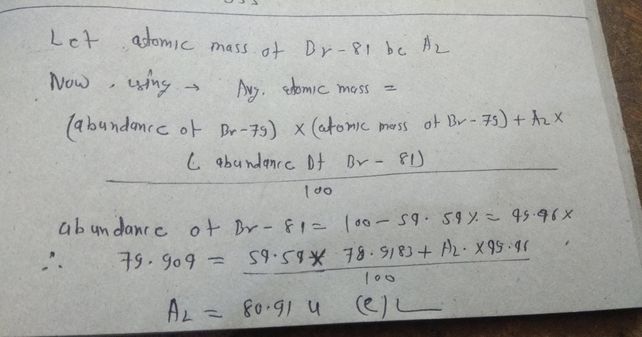 Let atomic mass of Br-81 be A2
Now, using → Avg. atomic mass =
(abundance of Br-79) x (atomic mass of Br-79) + A2 x
( abundance Of Br - 81)
100
abundance of Br-81 = 100 - 59.59% = 49.46%
∴ 79.909 = 59.59 x 78.9183 + A2 . x 49.46
100
A2 = 80.91 u (e) L